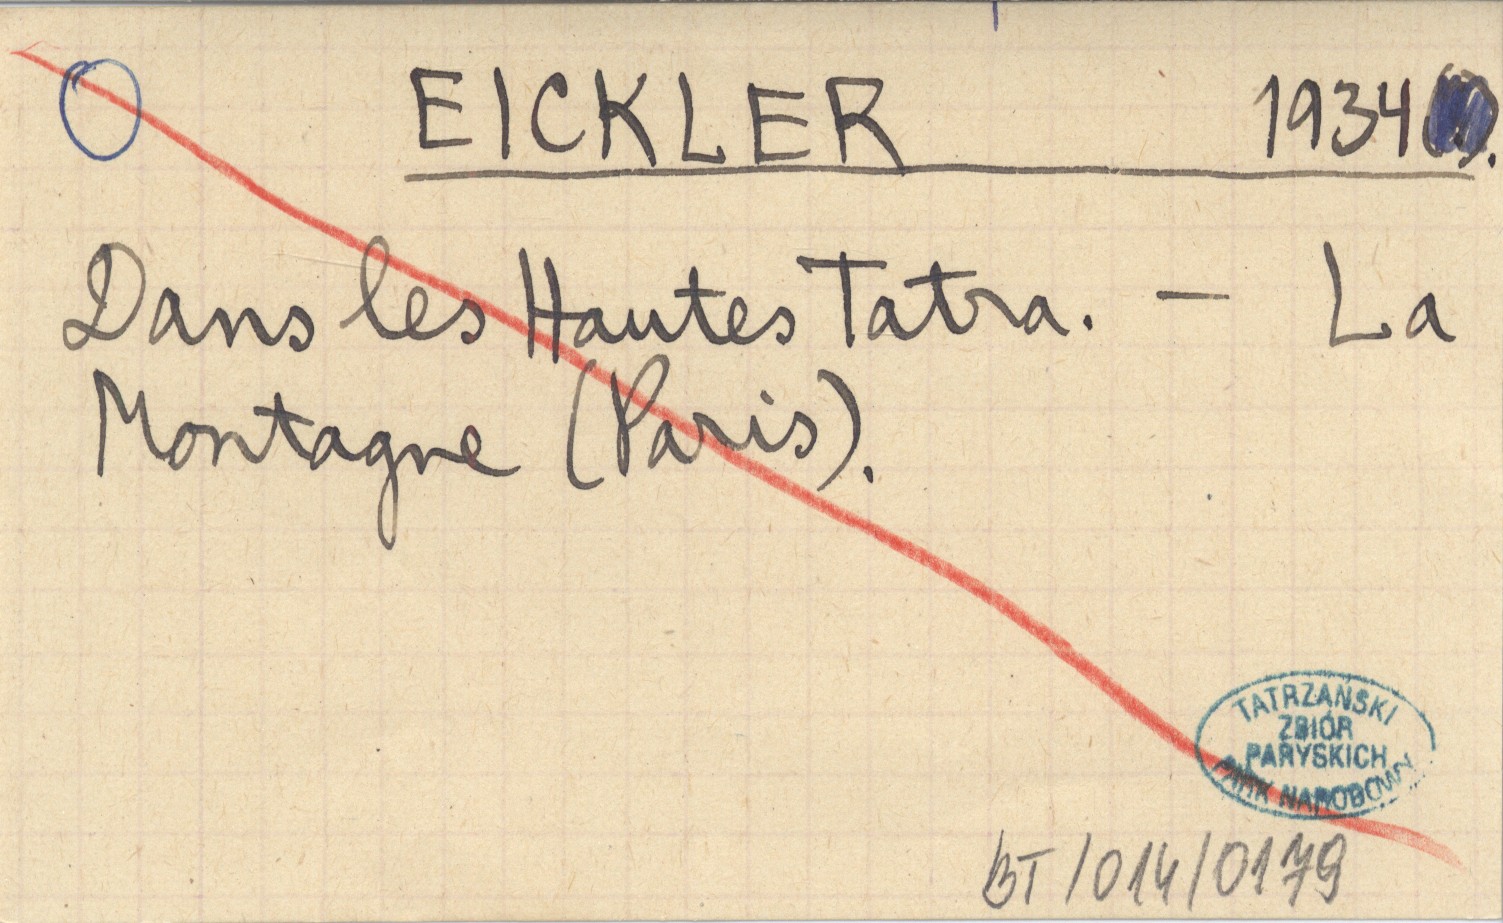 EICKLER 1934.
Dans les Hautes Tatra. — La
Montagne (Paris).
TATRZAŃSKI
ZBIÓR
PARYSKICH
PARK NARODOWY
BT/014/0179